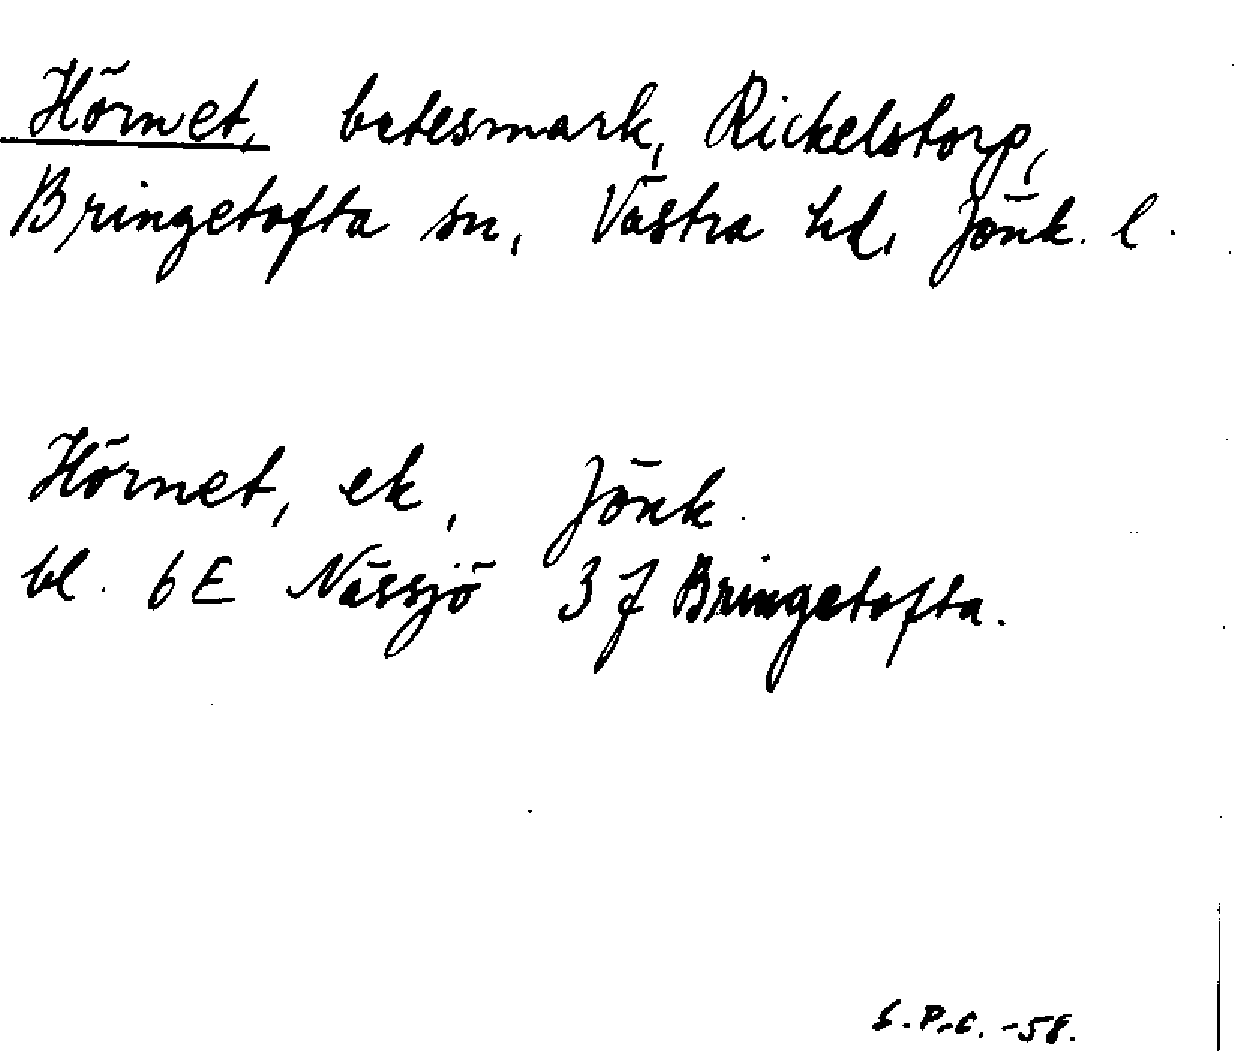 Hörnet, betesmark, Rickelstorp,
Bringetofta sn, Västra hd, Jönk. l.
Hörnet, ek, Jönk.
bl. 6E Nässjö 3f Bringetofta.
G.P-C. -58.